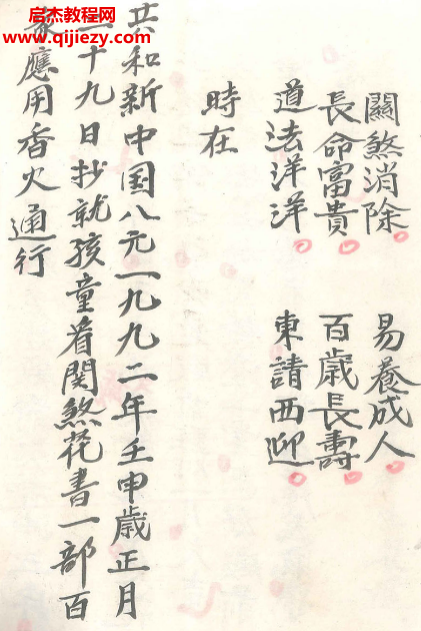 启杰教程网
www.qijiezy.com
關煞消除 易養成人
長命富貴 百歲長壽
道法洋洋 東請西迎
時在
共和新中国八元一九九二年壬申歲正月
二十九日抄就孩童着関煞花書一部百
家應用香火通行